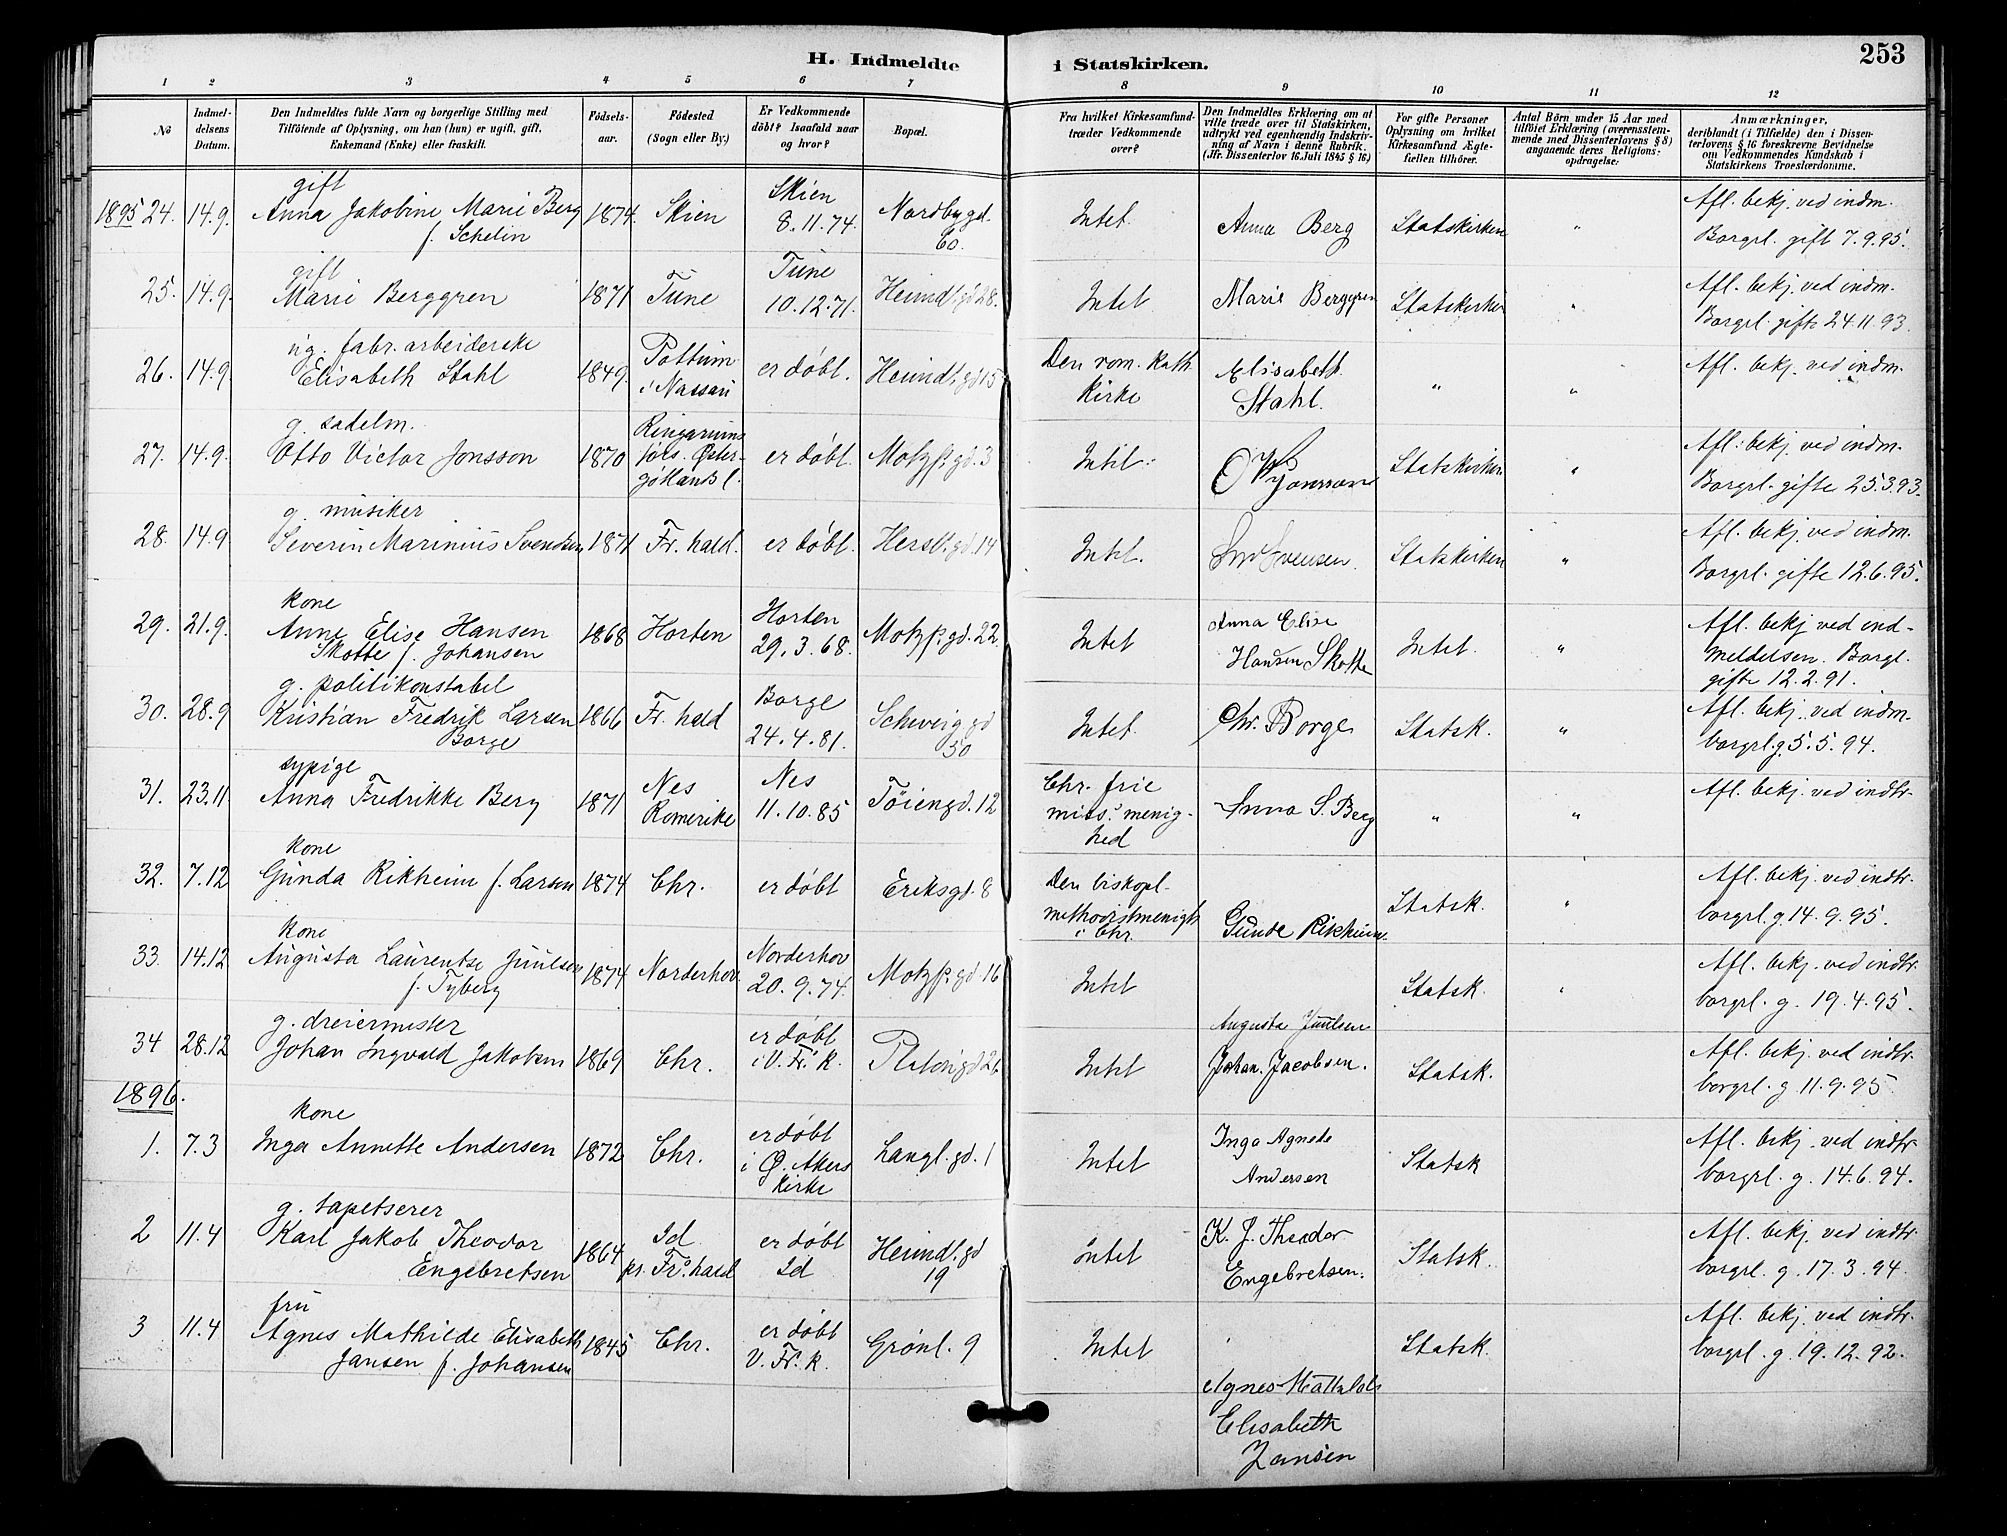 253
H. Indmeldte i Statskirken.
1 2 3 4 5 6 7 8 9 10 11 12
No
Indmel-
delsens
Datum.
Den Indmeldtes fulde Navn og borgerlige Stilling med
Tilføiende af Oplysning, om han (hun) er ugift, gift,
Enkemand (Enke) eller fraskilt.
Fødsels-
aar.
Fødested
(Sogn eller By.)
Er Vedkommende
døbt? Isaafald naar
og hvor?
Bopæl.
Fra hvilket Kirkesamfund
træder Vedkommende
over?
Den Indmeldtes Erklæring om at
ville træde over til Statskirken,
udtrykt ved egenhændig Indskriv-
ning af Navn i denne Rubrik.
(Jfr. Dissenterlov 16. Juli 1845 § 16)
For gifte Personer
Oplysning om hvilket
Kirkesamfund Ægte-
fællen tilhører.
Antal Børn under 15 Aar med
tilføiet Erklæring (overensstem-
mende med Dissenterlovens § 8)
angaaende deres Religions-
opdragelse:
Anmærkninger,
deriblandt (i Tilfælde) den i Dissen-
terlovens § 16 foreskrevne Bevidnelse
om Vedkommendes Kundskab i
Statskirkens Troeslærdomme.
1895 24. 14.9. gift
Anna Jakobine Marie Berg
f. Schelin
1874. Skien
Skien
8.11.74.
Nordbygd.
60.
Intet. Anna Berg Statskirken "
Afl. bekj. ved indm.
Borgrl. gift 7.9.95.
25. 14.9. gift
Marie Berggren
1871 Tune
Tune
10.12.71.
Heimdl.gd 28.
Intet. Marie Berggren Statskirken "
Afl. bekj. ved indm.
Borgrl. gifte 24.11.93.
26. 14.9. ug. fabr.arbeiderske
Elisabeth Stahl
1849.
Pottum
i Nassau
er døbt. Heimdl.gd 15
Den rom. kath.
Kirke
Elisabeth
Stahl.
" "
Afl. bekj. ved indm.
27. 14.9. g. sadelm.
Otto Victor Jonsson
1870
Ringarums
førs. Øster-
gøtlands l.
er døbt. Motzf.gd. 3
Intet. O V Jonsson Statskirken "
Afl. bekj. ved indm.
Borgrl. gifte 25.3.93.
28. 14.9. g. musiker
Severin Marinius Svendsen
1871 Fr. hald. er døbt. Hersl.gd. 14
Intet. Svendsen. Statskirken "
Afl. bekj. ved indm.
Borgrl. gifte 12.6.95.
29. 21.9. kone
Anne Elise Hansen
Skotte f. Johansen
1868 Horten
Horten
29.3.68.
Motzf.gd. 22.
Intet
Anna Elise
Hansen Skotte
Intet. "
Afl. bekj ved ind-
meldelsen. Borgl.
gifte 12.2.91.
30. 28.9 g. politikonstabel
Kristian Fredrik Larsen
Borge
1866 Fr. hald
Borge
24.4.81.
Schweig.gd
50
Intet. Chr. Borge Statsk. "
Afl. bekj. ved indm.
borgrl. g. 5.5.94.
31. 23.11. sypige
Anna Fredrikke Berg
1871
Nes
Romerike
Nes
11.10.85
Tøiengd. 12
Chr. frie
miss. menig-
hed
Anna S. Berg " "
Afl. bekj. ved indtr.
32. 7.12 kone
Gunda Rikheim f. Larsen
1874 Chr. er døbt Eriksgd. 8
Den biskopl.
methodistmenigh.
i Chr.
Gunda Rikheim. Statsk. "
Afl. bekj. ved indtr.
borgrl. g. 14.9.95.
33. 14.12 kone
Augusta Laurentse Juulsen
f. Tyberg
1874 Norderhov
Norderhov
20.9.74.
Motzf.gd 16
Intet Augusta Juulsen Statsk. "
Afl. bekj. ved indtr.
borgrl. g. 19.4.95.
34 28.12 g. dreiermester
Johan Ingvald Jakobsen
1869 Chr.
er døbt
i V. Fr. k.
Platousgd 26
Intet Johan. Jacobsen. Statsk.
Afl. bekj. ved indtr.
borgrl. g 11.9.95
1896.
1. 7.3 kone
Inga Annette Andersen
1872 Chr.
er døbt
i Ø. Akers
kirke
Langl.gd. 1
Intet
Inga Agnete
Andersen
Statsk
Afl. bekj. ved indtr
borgrl. g. 14.6.94.
2 11.4 g. tapetserer
Karl Jakob Theodor
Engebretsen
1864
Id
pr. Fr. hald
er døbt
Id
Heimdl.gd
19
intet
K. J. Theodor
Engebretsen.
Statsk.
Afl. bekj. ved indtr.
borgrl. g. 17.3.94.
3 11.4 fru
Agnes Mathilde Elisabeth
Jansen f. Johansen
1845 Chr.
er døbt
V. Fr. k.
Grønl. 9
Intet Statsk.
Afl. bekj. ved indtr.
borgrl. g. 19.12.92.
Agnes Mathilde
Elisabeth
Jansen